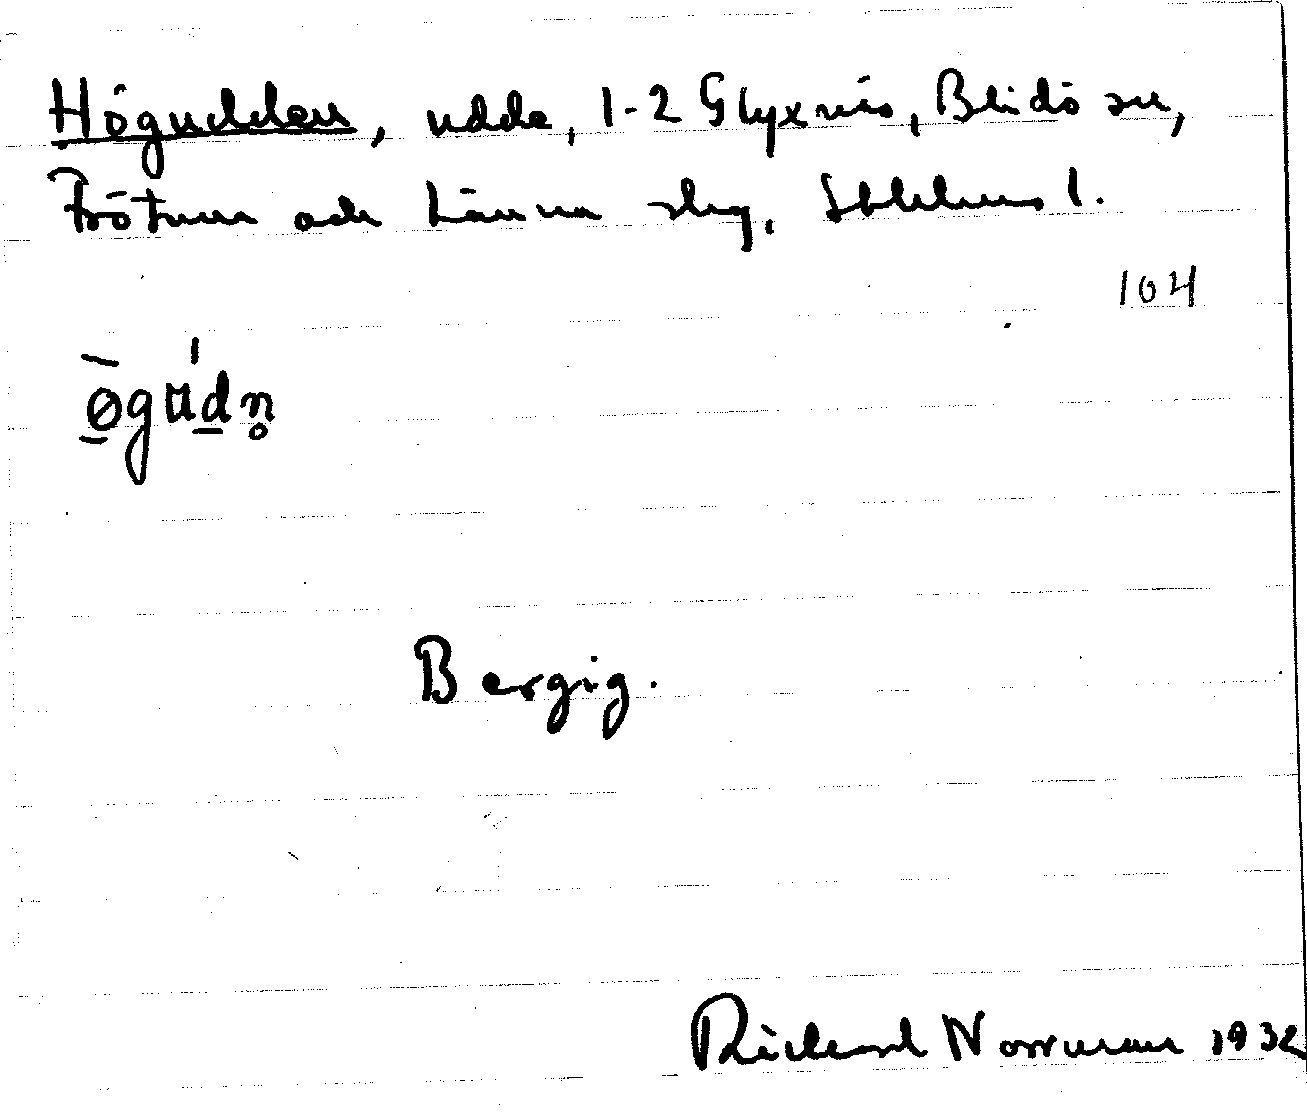 Högudden, udde, 1-2 Glyxnäs, Blidö sn,
Frötuna och Länna skg, Sthlms l.
104
ø̱̄gʉ́ḏn̥
Bergig.
Richard Norrman 1932